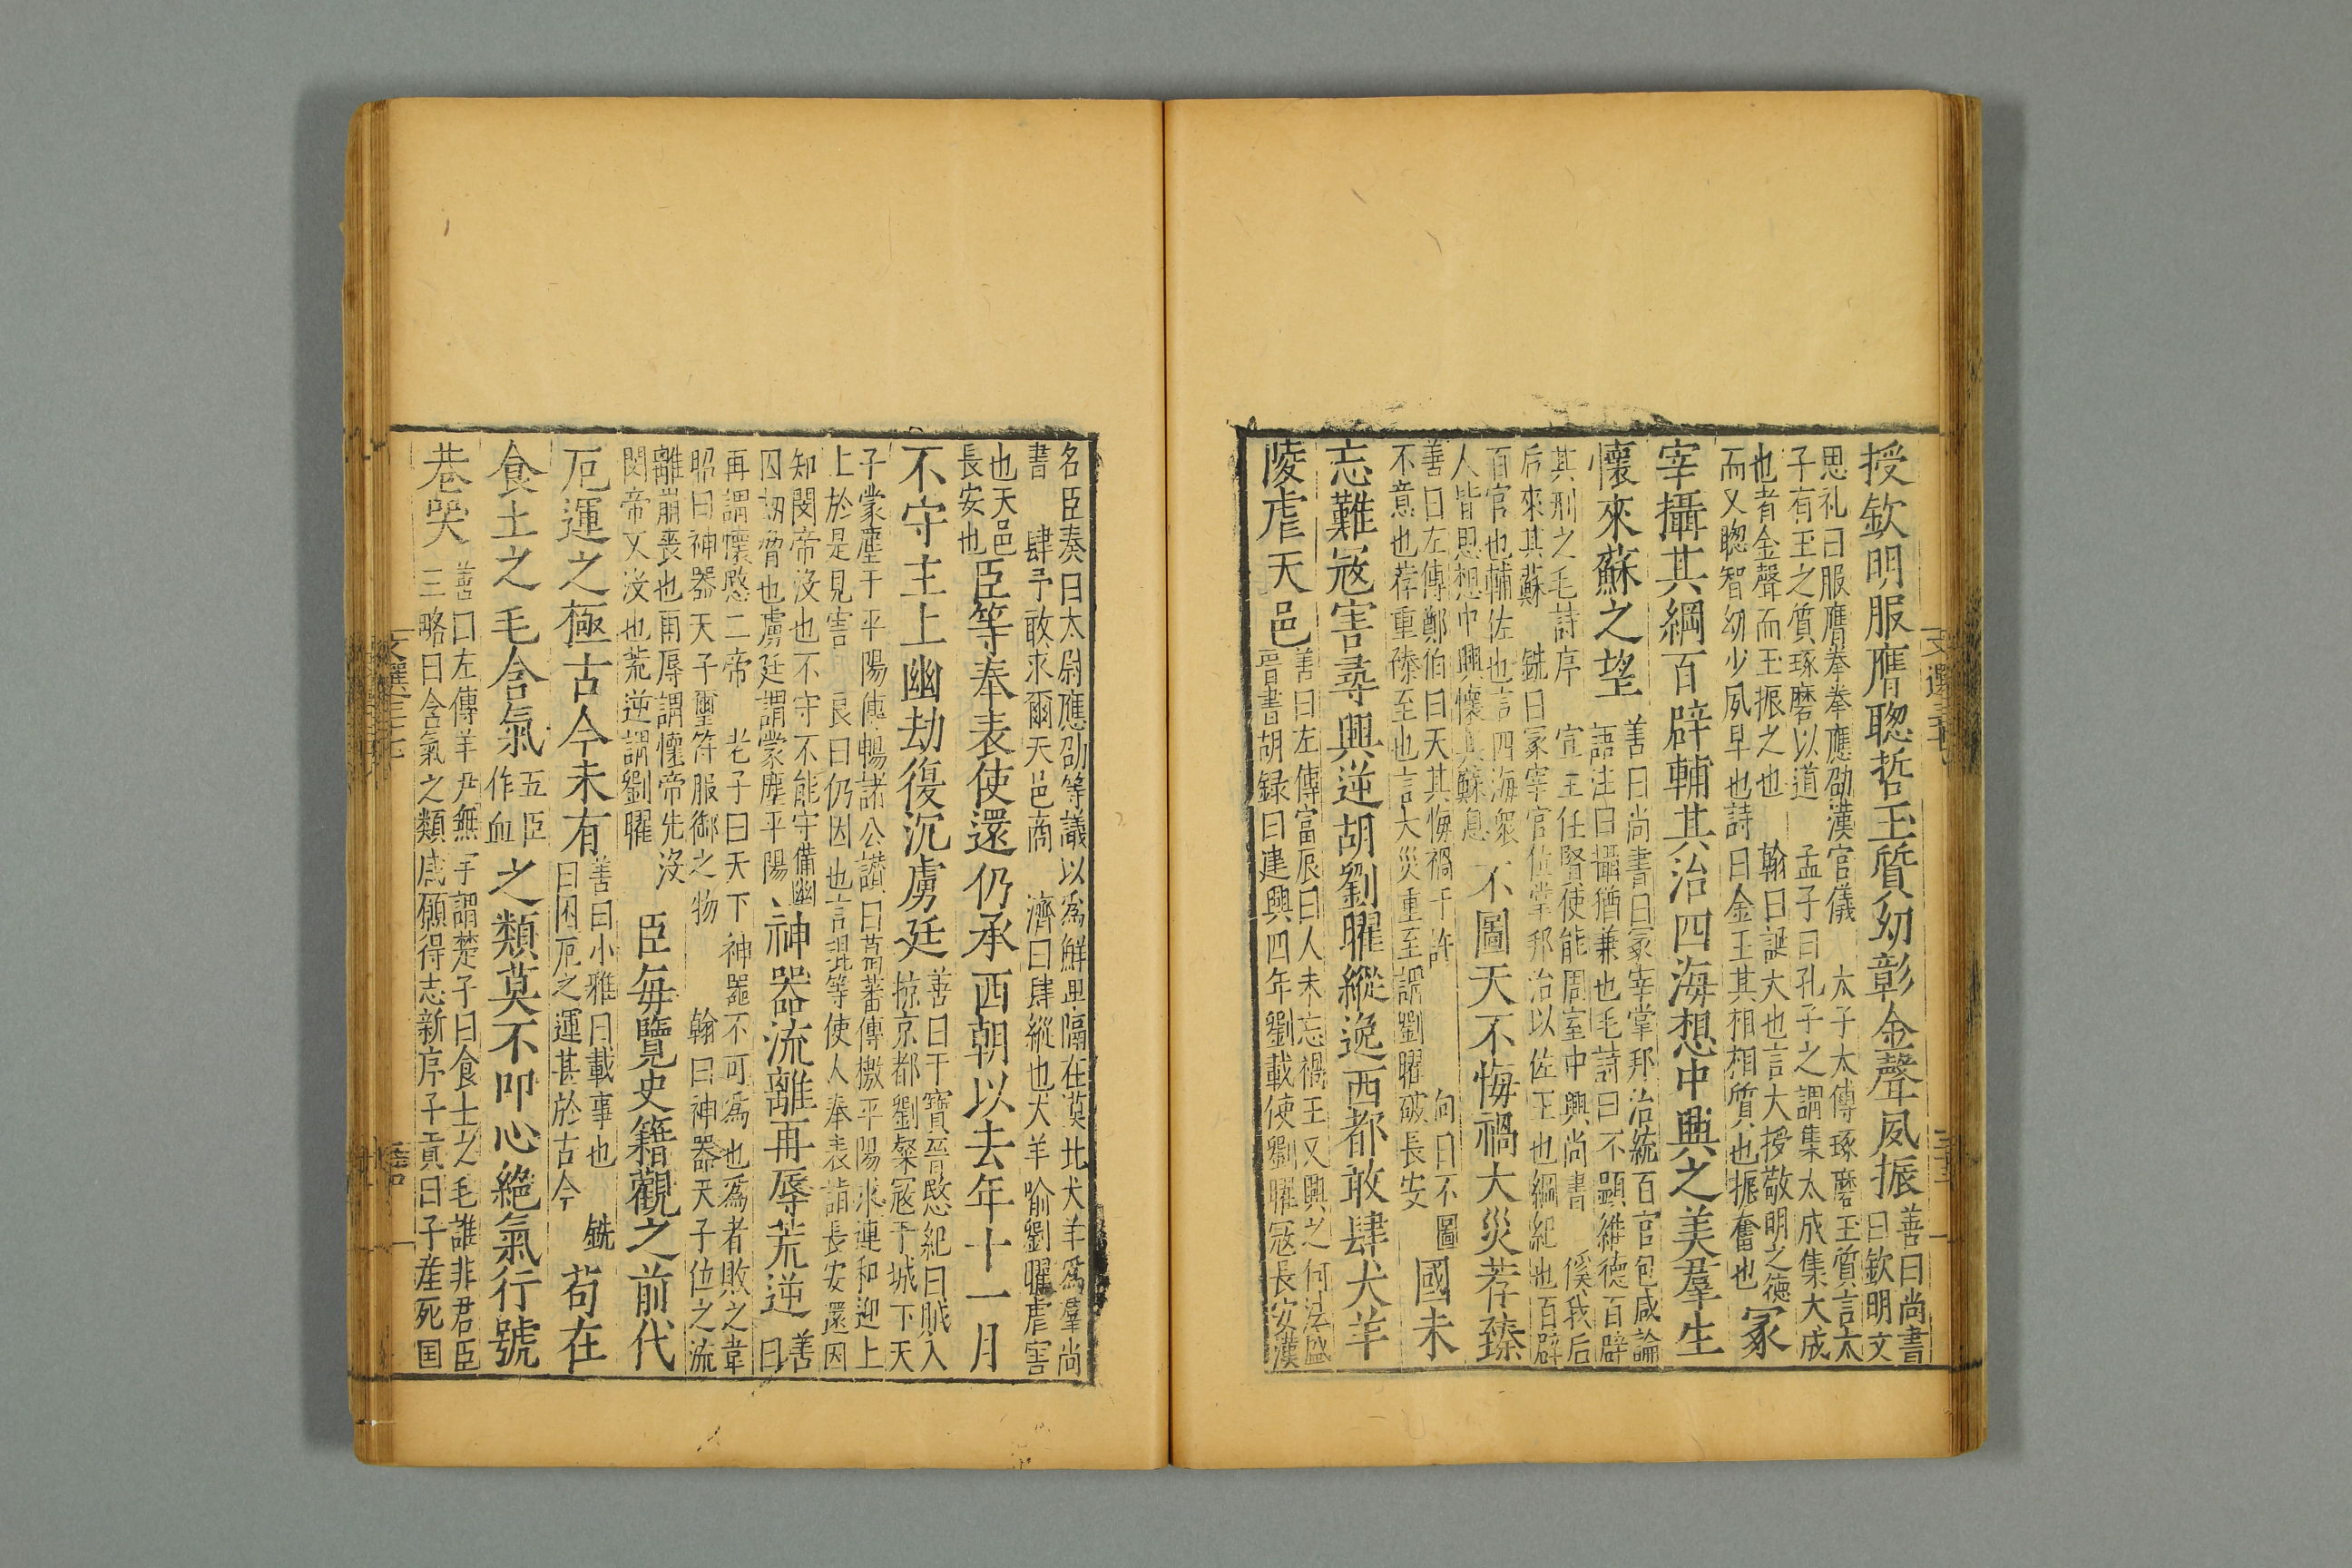 授欽明服膺聦哲玉質幼彰金聲夙振善曰尚書
曰欽明文
思礼曰服膺拳拳應劭漢官儀 太子太傅琢磨玉質言太
子有玉之質琢磨以道 孟子曰孔子之謂集太成集大成
也者金聲而玉振之也 翰曰誕大也言大授敬明之德
而又聦智幼少夙早也詩曰金玉其相相質也振奮也
冢
宰攝其綱百辟輔其治四海想中興之美羣生
懷來蘇之望善曰尚書曰冡宰掌邦治統百官包咸論
語注曰攝猶兼也毛詩曰不顯維德百辟
其刑之毛詩序 宣王任賢使能周室中興尚書 徯我后
后來其蘇 銑曰冡宰官位掌邦治以佐王也綱紀也百辟
百官也輔佐也言四海衆
人皆思想中興懷其蘇息
不圖天不悔禍大災荐臻
善曰左傳鄭伯曰天其悔禍于許 向曰不圖
不意也荐重臻至也言大災重至謂劉曜破長安
國未
忘難寇害尋興逆胡劉曜縱逸西都敢肆犬羊
陵虐天邑善曰左傳富辰曰人未忘禍王又興之何法盛
晉書胡録曰建興四年劉載使劉曜寇長安漢
名臣奏曰太尉應劭等議以爲鮮卑隔在漠北犬羊爲羣尚
書 肆予敢求爾天邑商 濟曰肆縱也犬羊喻劉曜虐害
也天邑
長安也
臣等奉表使還仍承西朝以去年十一月
不守主上幽劫復沉虜廷善曰干寶晉愍紀曰賊入
掠京都劉粲寇于城下天
子蒙塵于平陽傅暢諸公讃曰荀蕃傳檄平陽求連和迎上
上於是見害 良曰仍因也言琨等使人奉表詣長安還因
知閔帝沒也不守不能守備幽
囚刼脅也虜廷謂蒙塵平陽
神器流離再辱荒逆善
曰
再謂懷愍二帝 老子曰天下神器不可爲也爲者敗之韋
昭曰神器天子璽符服御之物 翰曰神器天子位之流
離崩喪也再辱謂懷帝先沒
閔帝又沒也荒逆謂劉曜
臣每覽史籍觀之前代
厄運之極古今未有善曰小雅曰載事也 銑
曰困厄之運甚於古今
苟在
食土之毛含氣五臣
作血之類莫不叩心絶氣行號
巷哭善曰左傳羊尹無宇謂楚子曰食土之毛誰非君臣
三略曰含氣之類咸願得志新序子貢曰子産死国